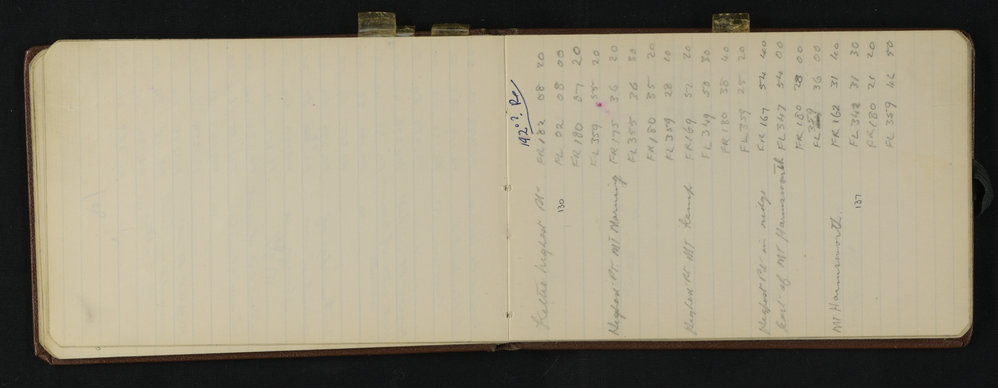 192°? Re
Keltie highest Pt- FR 182 08 20
FL 02 08 00
130
FR 180 07 20
FL 359 55 20
Highest Pt. Mt Morning FR 175 36 20
FL 355 36
FR 180 35 20
FL 359 28
Highest Pt Mt Kemp FR 169 52 20
FL 349 53
FR 180 38 40
FL 359 25 20
Highest Pt- in ridge FR 167 54 40
East of Mt Harmsworth FL 347 54 00
FR 180 28 00
FL 359 36 00
Mt Harmsworth. FR 162 31 40
137
FL 342 31 30
FR 180 21 20
FL 359 42 50